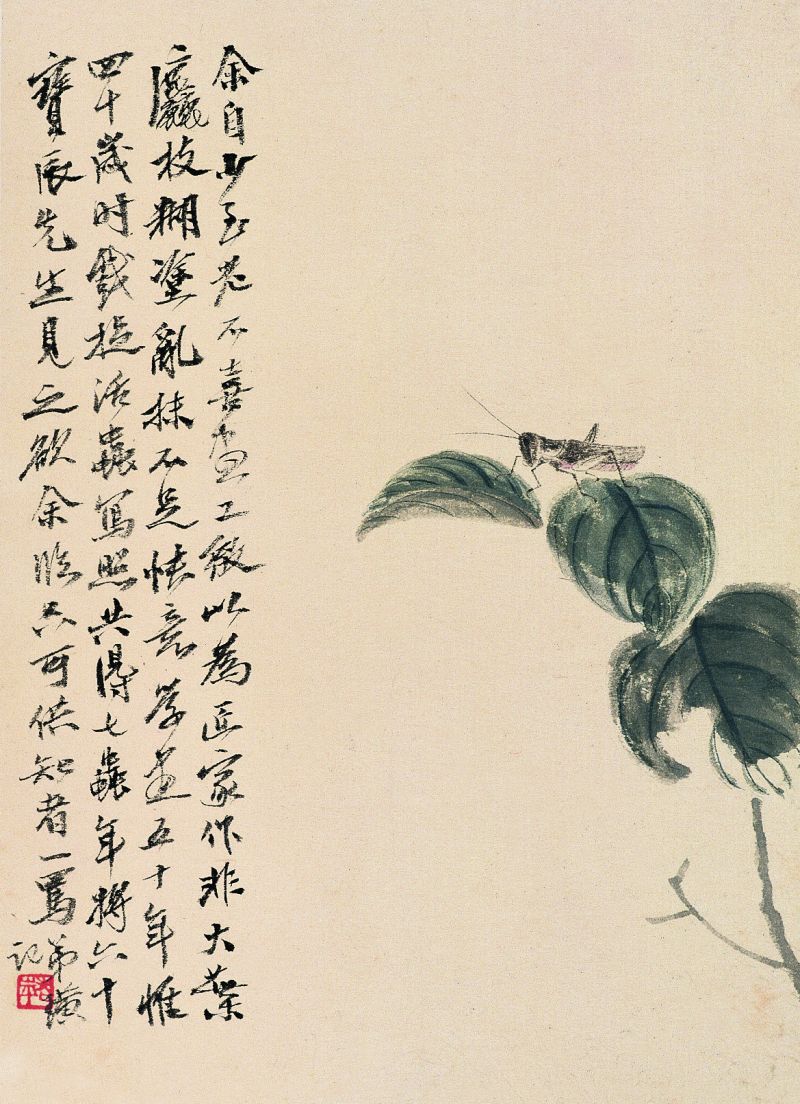 余自少至老不喜画工致以为匠家作非大叶
粗枝糊塗亂抹不足快意学画五十年惟
四十歲时戲捉活蟲寫照共得七蟲年将六十
寶辰先生見之欲余臨只可供知者一罵弟璜
记